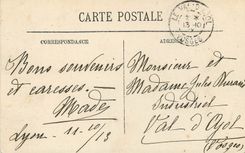 CARTE POSTALE
CORRESPONDANCE
ADRESSE
Bons souvenirs
et caresses.
Made
Lyon _ 11-10/13
Monsieur et
Madame Jules
Industriel
Val d'Ajol
Vosges